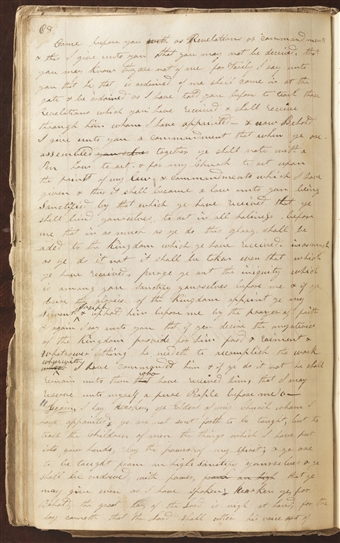 68
come before you with as Revelations as commandments
& this I give unto you that you may not be deceived, that
you may know they are not of me for Verily I say unto
you that he that is ordained of me shall come in at the
gate & be ordained as I have told you before to teach those
Revelations which you have received & shall receive
through him whom I have appointed & now Behold
I give unto you a commandment that when ye are
assembled together ye shall note with a
Pen how to act & for my Church to act upon
the points of my Law & commandments which I have
given & thus it shall become a Law unto you being
sanctified by that which ye have received that ye
shall bind yourselves to act in all holiness before
me that in as much as ye do this glory shall be
added to the Kingdom which ye have received in as much
as ye do it not it shall be taken even that which
ye have received purge ye out the iniquity which
is among you Sanctify yourselves before me & if ye
desire the glories of the Kingdom appoint ye my
servent Joseph & uphold him before me by the prayer of faith
& again I say unto you that if you desire the mysteries
of the Kingdom provide for him food & raiment &
whatsoever thing he needeth to accomplish the work
wherewith I have commanded him & if ye do it not he shall
remain unto them who have received him that I may
reserve unto myself a pure People before me
Again I say hearken ye Elders of my church whom I
have appointed ye are not sent forth to be taught but to
teach the children of men the things which I have put
into your hands by the power of my spirit & ye are
to be taught from on high Sanctify yourselves & ye
shall be endowed with power that ye
may give even as I have spoken Hearken ye for
Behold the great day of the Lord is nigh at hand for the
day cometh that the Lord shall utter his voice out of